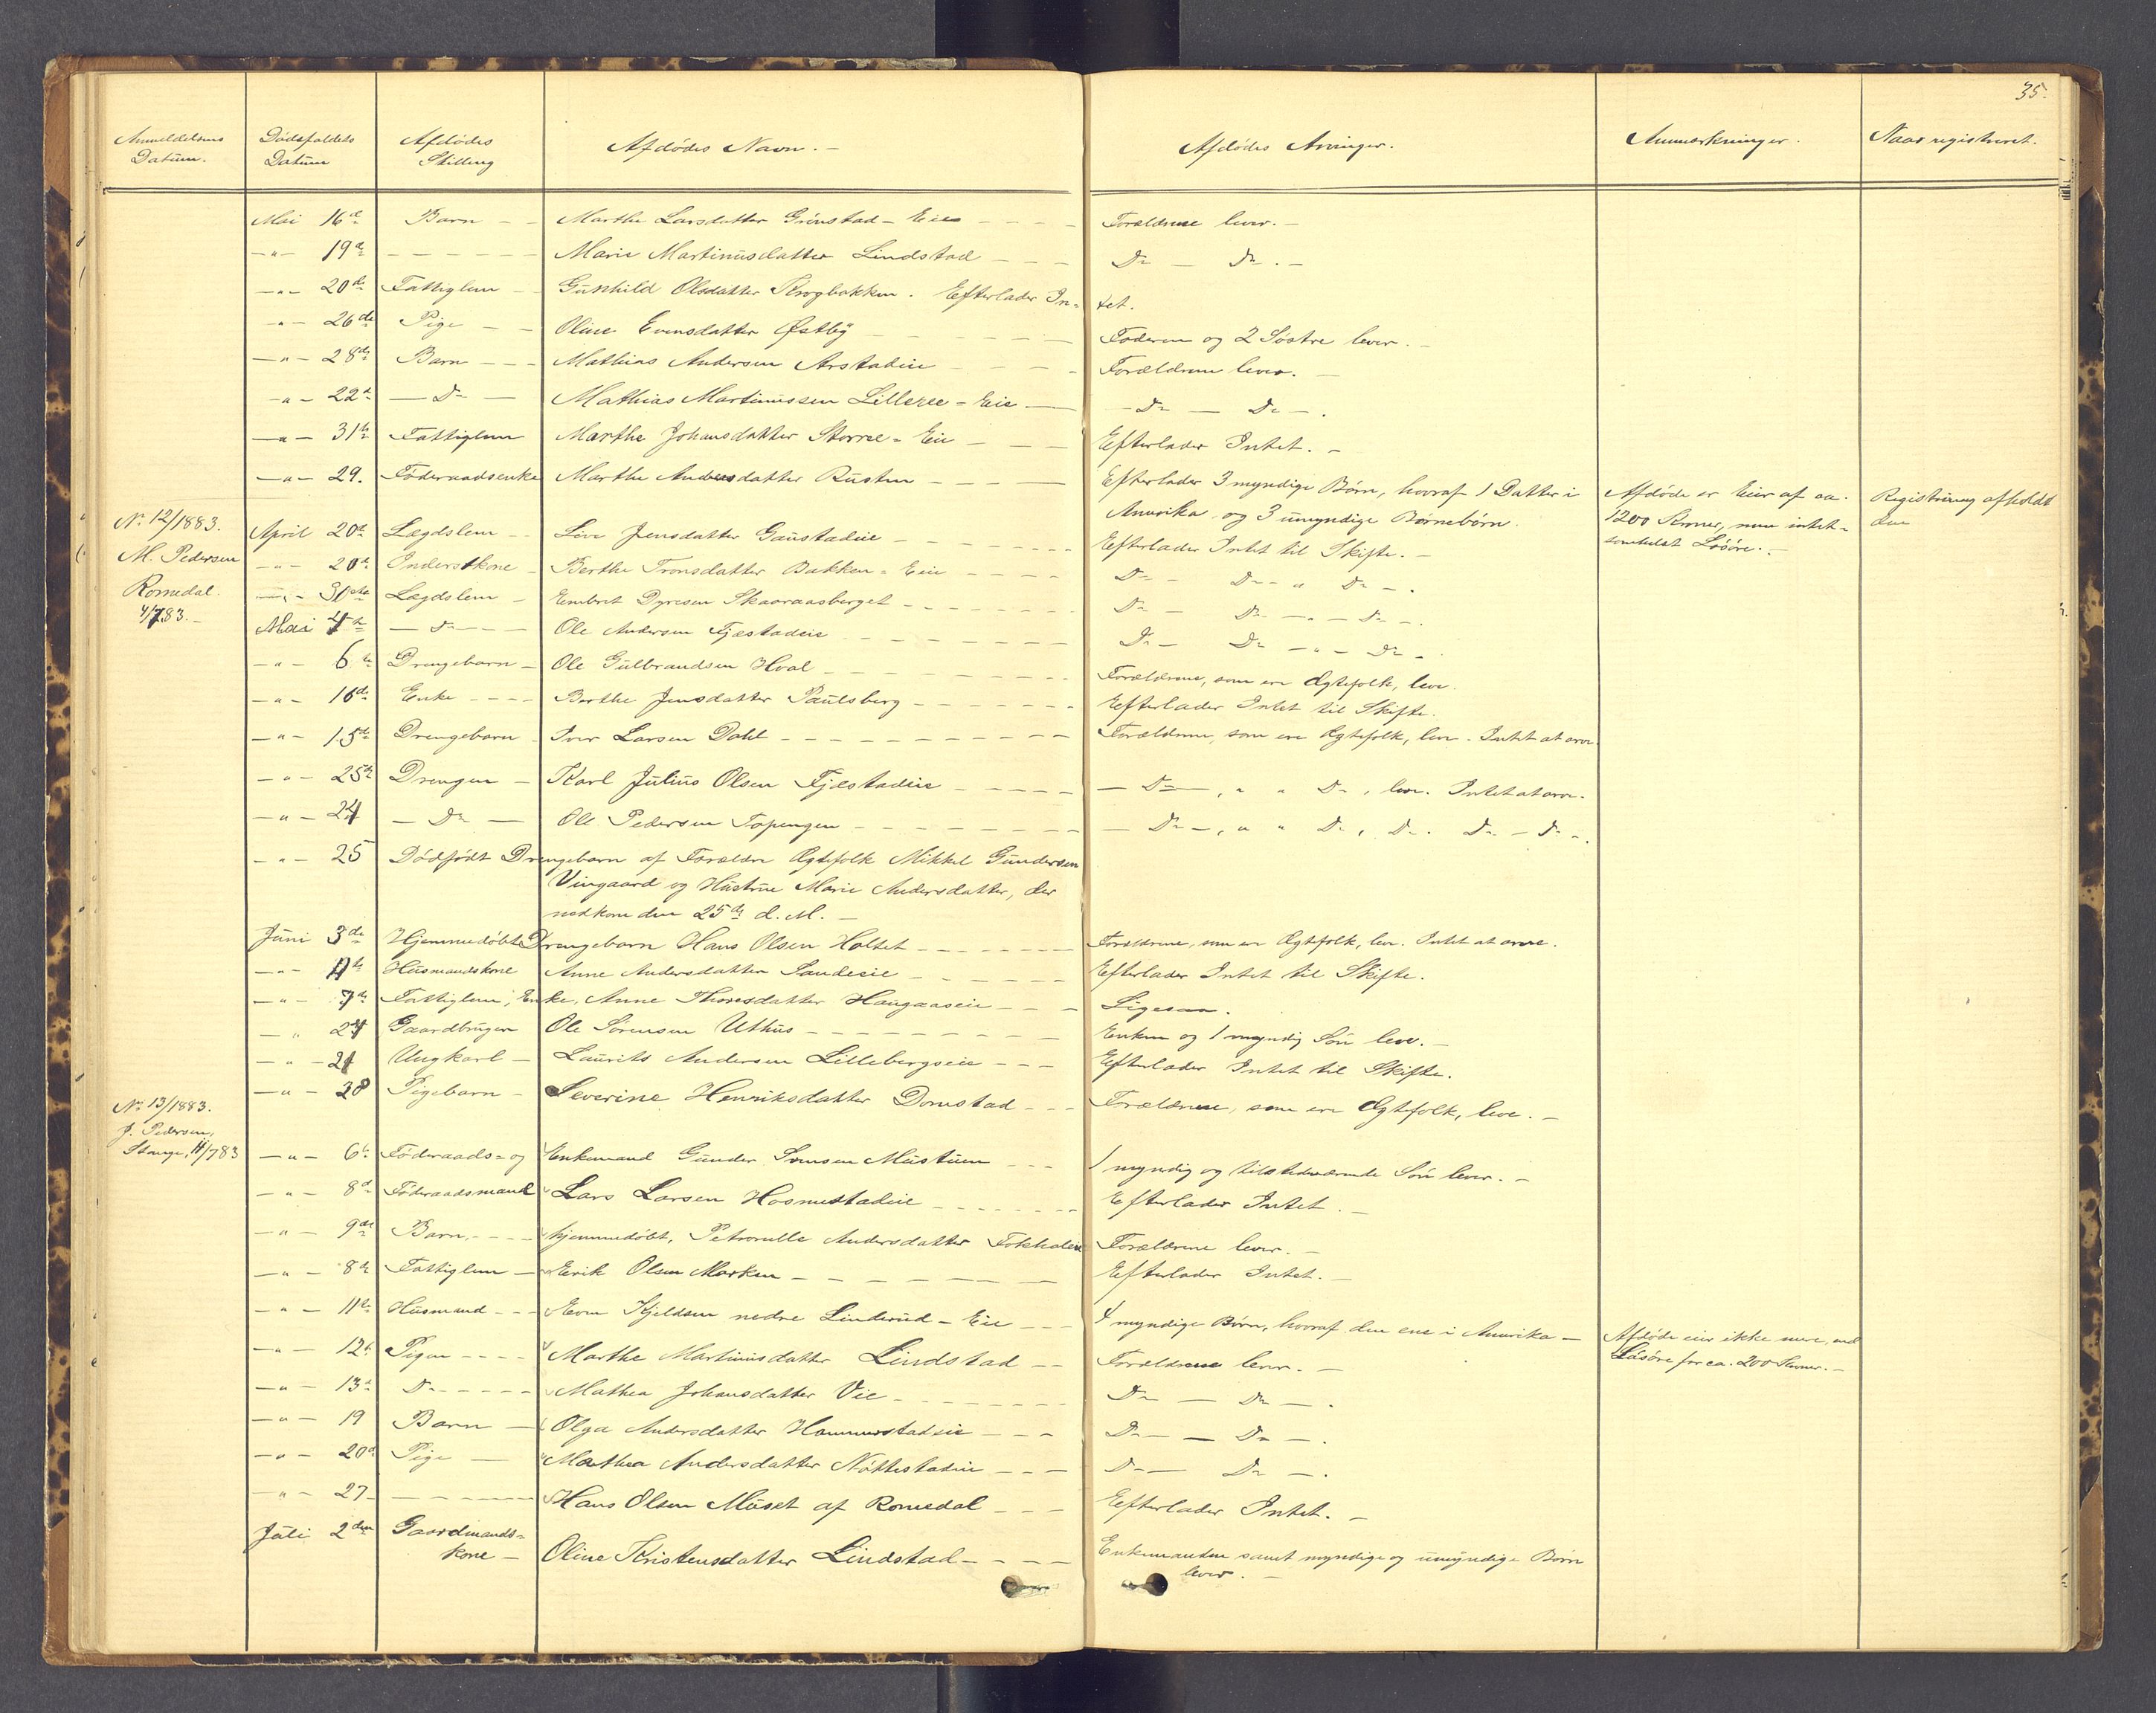 35.
Anmeldelsens Datum. Dödsfaldets Datum Afdödes Stilling Afdödes Navn. - Afdödes Arvinger. Anmærkninger. Naar registreret.
Mai 16de Barn - - Marthe Larsdatter Grönstad - Eie - - - - Forældrene lever. -
-"- 19de - - - - - - Marie Martinusdatter Lindstad - - - Do - Do. -
-"- 20de Fattiglem - Gunhild Olsdatter Krogbakken. Efterlader In= tet.
-"- 26de Pige - - Oline Evensdatter Østby - - - - - Faderen og 2 Søstre lever. -
-"- 28de Barn - - - Mathias Andersen Arstadeie - - - - Forældrene lever. -
-"- 22de - Do - Mathias Martinussen Lilleree = Eie - - Do - Do - .
-"- 31te Fattiglem Marthe Johansdatter Storree = Eie - - - Efterlader Intet. -
-"- 29. Föderaadsenke Marthe Andersdatter Rusten - - - - Efterlader 3 myndige Børn, hvoraf 1 Datter i Afdøde er Eier af ca. Registrering afholdt
Amerika og 3 umyndige Børnebørn. 1200 Kroner, men intet= den
somhelst Løsøre. -
No 12/1883. April 20de Lægdslem - - Live Jensdatter Gaustadeie - - - - - Efterlader Intet til Skifte. -
M. Pedersen -"- 20de Inderstkone - Berthe Tronsdatter Bakken = Eie - - - - Do - Do - " Do - .
Romedal. -"- 30te Lægdslem - Embret Dyresen Skaaraasberget - - - - - - Do - Do - " - Do - .
4/7 83. - Mai 4de - Do - - - Ole Andersen Fjæstadeie - - - - - - Do - Do - " - Do - .
-"- 6te Drengebarn - Ole Gulbrandsen Hval - - - - - - - Forældrene, som ere Ægtefolk, leve.
-"- 16de Enke - - - - Berthe Jensdatter Paulsberg - - - - - - Efterlader Intet til Skifte.
-"- 15de Drengebarn Iver Larsen Dahl - - - - - - - - Forældrene, som ere Ægtefolk, leve. Intet at arve.
-"- 25de Drengen - Karl Julius Olsen Fjæstadeie - - - - - - Do -, " " Do, leve. Intet at arve.
-"- 24 - Do - Ole Pedersen Tapengen - - - - - - - - Do -, " " Do, Do. Do - Do - .
-"- 25 Dödfödt Drengebarn af Forældre Ægtefolk Mikkel Gundersen
Vingaard og Hustrue Marie Andersdatter, der
nedkom den 25de d. M. -
Juni 3de Hjemmedöbte Drengebarn Hans Olsen Holtet - - - - - - Forældrene, som ere Ægtefolk, leve. Intet at arve.
-"- 4de Husmandskone Anne Andersdatter Sandeeie - - - - - Efterlader Intet til Skifte.
-"- 7de Fattiglem, Enke, Anne Thoresdatter Haugaaseie - - - Ligesaa.
-"- 24 Gaardbruger Ole Sörensen Uthus - - - - - - - - Enken og 1 myndig Sön leve. -
-"- 24 Ungkarl - Laurits Andersen Lillebergseie - - - Efterlader Intet til Skifte.
-"- 28 Pigebarn - Severine Henriksdatter Dorustad - - - Forældrene, som ere Ægtefolk, leve. -
No 13/1883.
J. Pedersen,
Stange, 11/7 83 -"- 6te Föderaads= og Enkemand Gunder Mustuen - - - 1 myndig og tilstedeværende Sön lever. -
-"- 8de Föderaadsmand Lars Larsen Hosmestadeie - - - - - - Efterlader Intet. -
-"- 9de Barn, - - - hjemmedöbt, Petronelle Andersdatter Forældrene lever. -
-"- 8de Fattiglem - Eerik Olsen Marken - - - - - - - Efterlader Intet. -
-"- 11te Husmand - - - Even Kjeldsen nedre Linderud - Eie - - - 4 myndige Børn, hvoraf den ene i Amerika - Afdøde eier ikke mere, end
Løsøre for ca. 200 Kroner. -
-"- 12te Pigen - - - - Marthe Martinusdatter Lindstad - - Forældrene lever. -
-"- 13de Do - - - - - Mathea Johansdatter Vie - - - - - - - Do - Do - .
-"- 19 Barn - Olga Andersdatter Hammerstadeie - - - Do - - Do - .
-"- 20de Pige - Mathea Andersdatter Nöttestadeie - - - Do - Do - .
-"- 27 - - - - - - Hans Olsen Muset af Romedal - - - Efterlader Intet. -
Juli 2den Gaardmands=
kone - Oline Kristensdatter Lindstad - - - - Enkemanden samt myndige og umyndige Børn
lever. -